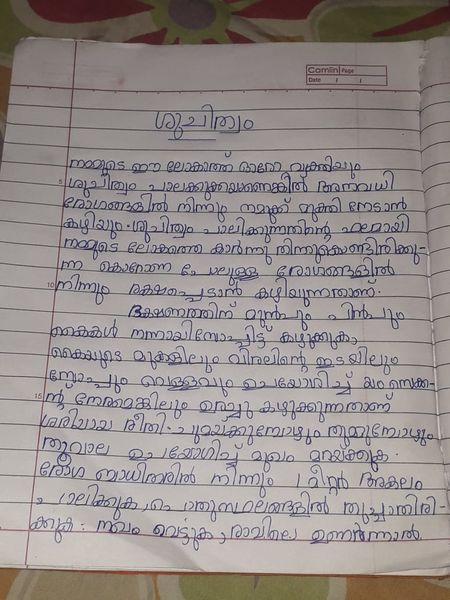 Camlin Page
Date / /
ശുചിത്വം
നമ്മുടെ ഈ ലോകത്ത് ഓരോ വ്യക്തിയും
5 ശുചിത്വം പാലക്കുകയാണെങ്കിൽ അനവധി
രോഗങ്ങളിൽ നിന്നും നമുക്ക് മുക്തി നേടാൻ
കഴിയും. ശുചിത്വം പാലിക്കുന്നതിന്റെ ഫലമായി
നമ്മുടെ ലോകത്തെ കാർന്നു തിന്നുകൊണ്ടിരിക്കു-
ന്ന കൊറോണ പോലുള്ള രോഗങ്ങളിൽ
10 നിന്നും രക്ഷപ്പെടാൻ കഴിയുന്നതാണ്.
ഭക്ഷണത്തിന് മുൻപും പിൻപും
കൈകൾ നന്നായിസോപ്പിട്ട് കഴുകുക,
കൈയുടെ മുകളിലും വിരലിന്റെ ഇടയിലും
സോപ്പും വെള്ളവും ഉപയോഗിച്ച് സെക്ക-
15 ന്റ് നേരമെങ്കിലും ഉരച്ചു കഴുകുന്നതാണ്
ശരിയായ രീതി. ചുമയ്ക്കുമ്പോഴും തുമ്മുമ്പോഴും
തൂവാല ഉപയോഗിച്ച് മുഖം മറയ്ക്കുക.
രോഗ ബാധിതരിൽ നിന്നും 1 മീറ്റർ അകലം
പാലിക്കുക, പൊതുസ്ഥലങ്ങളിൽ തുപ്പാതിരി-
ക്കുക. നഖം വെട്ടുക, രാവിലെ ഉണർന്നാൽ.